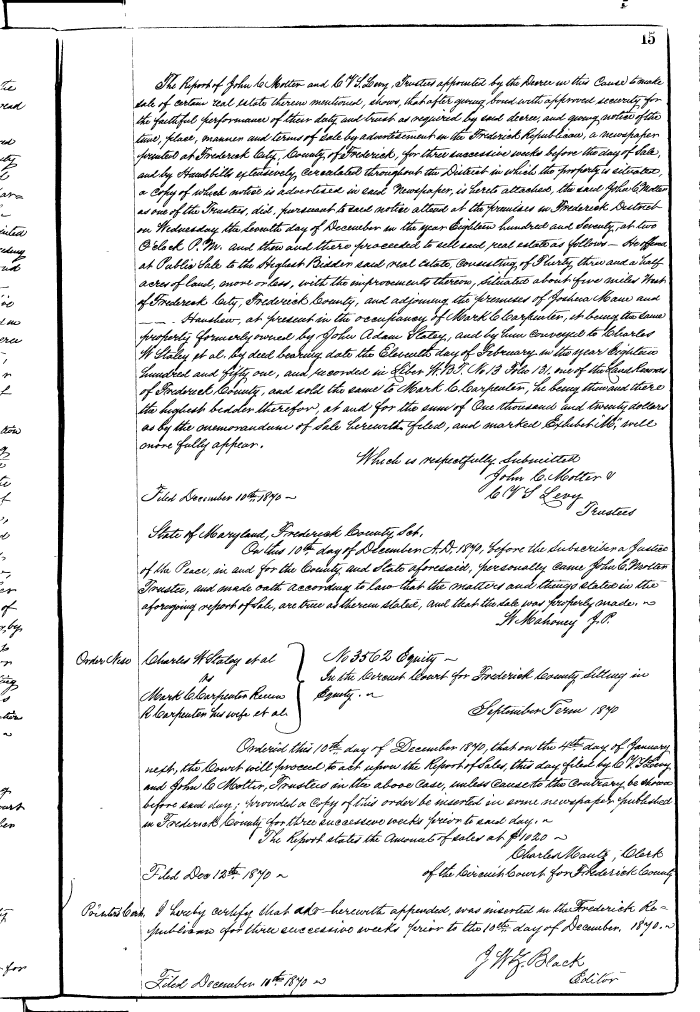 15
The Report of John C Motter and C V S Levy, Trustees appointed by the Decree in this Cause to make
sale of certain real estate therein mentioned, shows, that after giving bond with approved security for
the faithful performance of their duty and trust as required by said decree, and giving notice of the
time, place, manner and terms of sale by advertisement in the Frederick Republican, a newspaper
printed at Frederick City, County of Frederick, for three successive weeks before the day of Sale,
and by Handbills extensively circulated throughout the District in which the property is situated,
a copy of which notice is advertised in said Newspaper, is hereto attached, the said John C Motter
as one of the Trustees, did, pursuant to said notice attend at the premises in Frederick District
on Wednesday the Seventh day of December in the year Eighteen hundred and Seventy, at two
O'clock P.M. and then and there proceeded to sell said real estate as follows – He offered
at Public Sale to the Highest Bidder said real estate, consisting of Thirty three and a half
acres of land, more or less, with the improvements thereon, situated about five miles West
of Frederick City, Frederick County, and adjoining the premises of Joshua and
Hanshew, at present in the occupancy of Mark C Carpenter, it being the same
property formerly owned by John Adam Staley, and by him conveyed to Charles
W Staley et al. by deed bearing date the Eleventh day of February in the year Eighteen
hundred and fifty one, and recorded in Liber W.B.T. No 13 folio 131, one of the Land Records
of Frederick County, and sold the same to Mark C Carpenter, he being then and there
the highest bidder therefor, at and for the sum of One thousand and twenty dollars
as by the memorandum of Sale herewith filed, and marked Exhibit M, will
more fully appear.
Which is respectfully submitted
John C. Motter &
Filed December 10th 1870 ~ C V S Levy
Trustees
State of Maryland, Frederick County, Sct.
On this 10th day of December A.D. 1870, before the Subscriber a Justice
of the Peace, in and for the County and State aforesaid, personally came John C. Motter
Trustee, and made oath according to law that the matters and things stated in the
aforegoing report of Sale, are true as therein stated, and that the sale was properly made. ~
W Mahoney J.P.
Order Nisi Charles W Staley et al No 3562 Equity ~
vs In the Circuit Court for Frederick County sitting in
Mark C Carpenter Equity. ~
R Carpenter his wife et al. September Term 1870
Ordered this 10th day of December 1870, that on the 4th day of January
next, the Court will proceed to act upon the Report of Sales, this day filed by C V S Levy
and John C Motter, Trustees in the above case, unless cause to the contrary be shown
before said day; provided a copy of this order be inserted in some newspaper published
in Frederick County for three successive weeks prior to said day. ~
The Report states the Amount of sales at $1020 ~
Charles Mantz, Clerk
Filed Dec 12th 1870 ~ of the Circuit Court for Frederick County
Printers Cert. I hereby certify that ad herewith appended, was inserted in the Frederick Re-
publican for three successive weeks prior to the 10th day of December. 1870. ~
Black
Editor
Filed December 10th 1870 ~